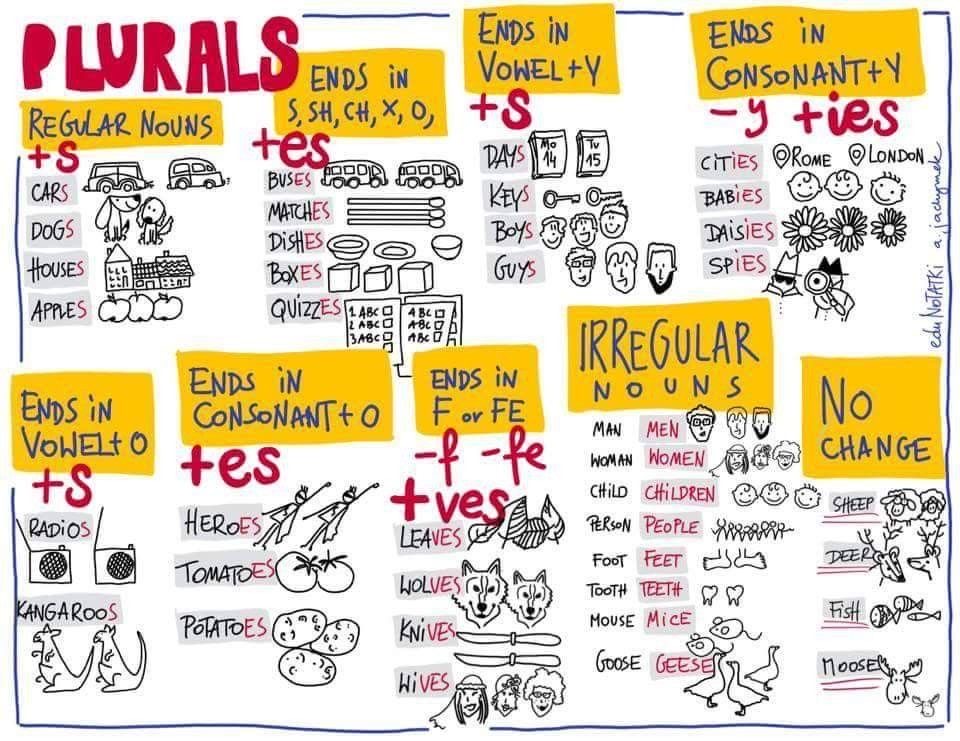 PLURALS
REGULAR NOUNS
+s
CARS
DOGS
HOUSES
APPLES
ENDS iN
S, SH, CH, X, O,
+es
BUSES
MATCHES
DiSHES
BOXES
QUIZZES
1 ABC
2 ABC
3 ABC
4 BC
ABC
ABC
ENDS iN
VOWEL+Y
+s
DAYS
Mo
14
Tu
15
KEYS
BOYS
GUYS
ENDS iN
CONSONANT+Y
-y +ies
CiTiES
ROME LONDON
BABiES
DAiSiES
SPiES
eduNOTATKi a.jadrymek
ENDS iN
VOWEL+O
+s
RADiOS
KANGAROOS
ENDS iN
CONSONANT+O
+es
HEROES
TOMATOES
POTATOES
ENDS iN
F or FE
-f -fe
+ves
LEAVES
WOLVES
KNiVES
WiVES
IRREGULAR
NOUNS
MAN MEN
WOMAN WOMEN
CHiLD CHiLDREN
PERSON PEOPLE
FOOT FEET
TOOTH TEETH
MOUSE MiCE
GOOSE GEESE
NO
CHANGE
SHEEP
DEER
FiSH
MOOSE